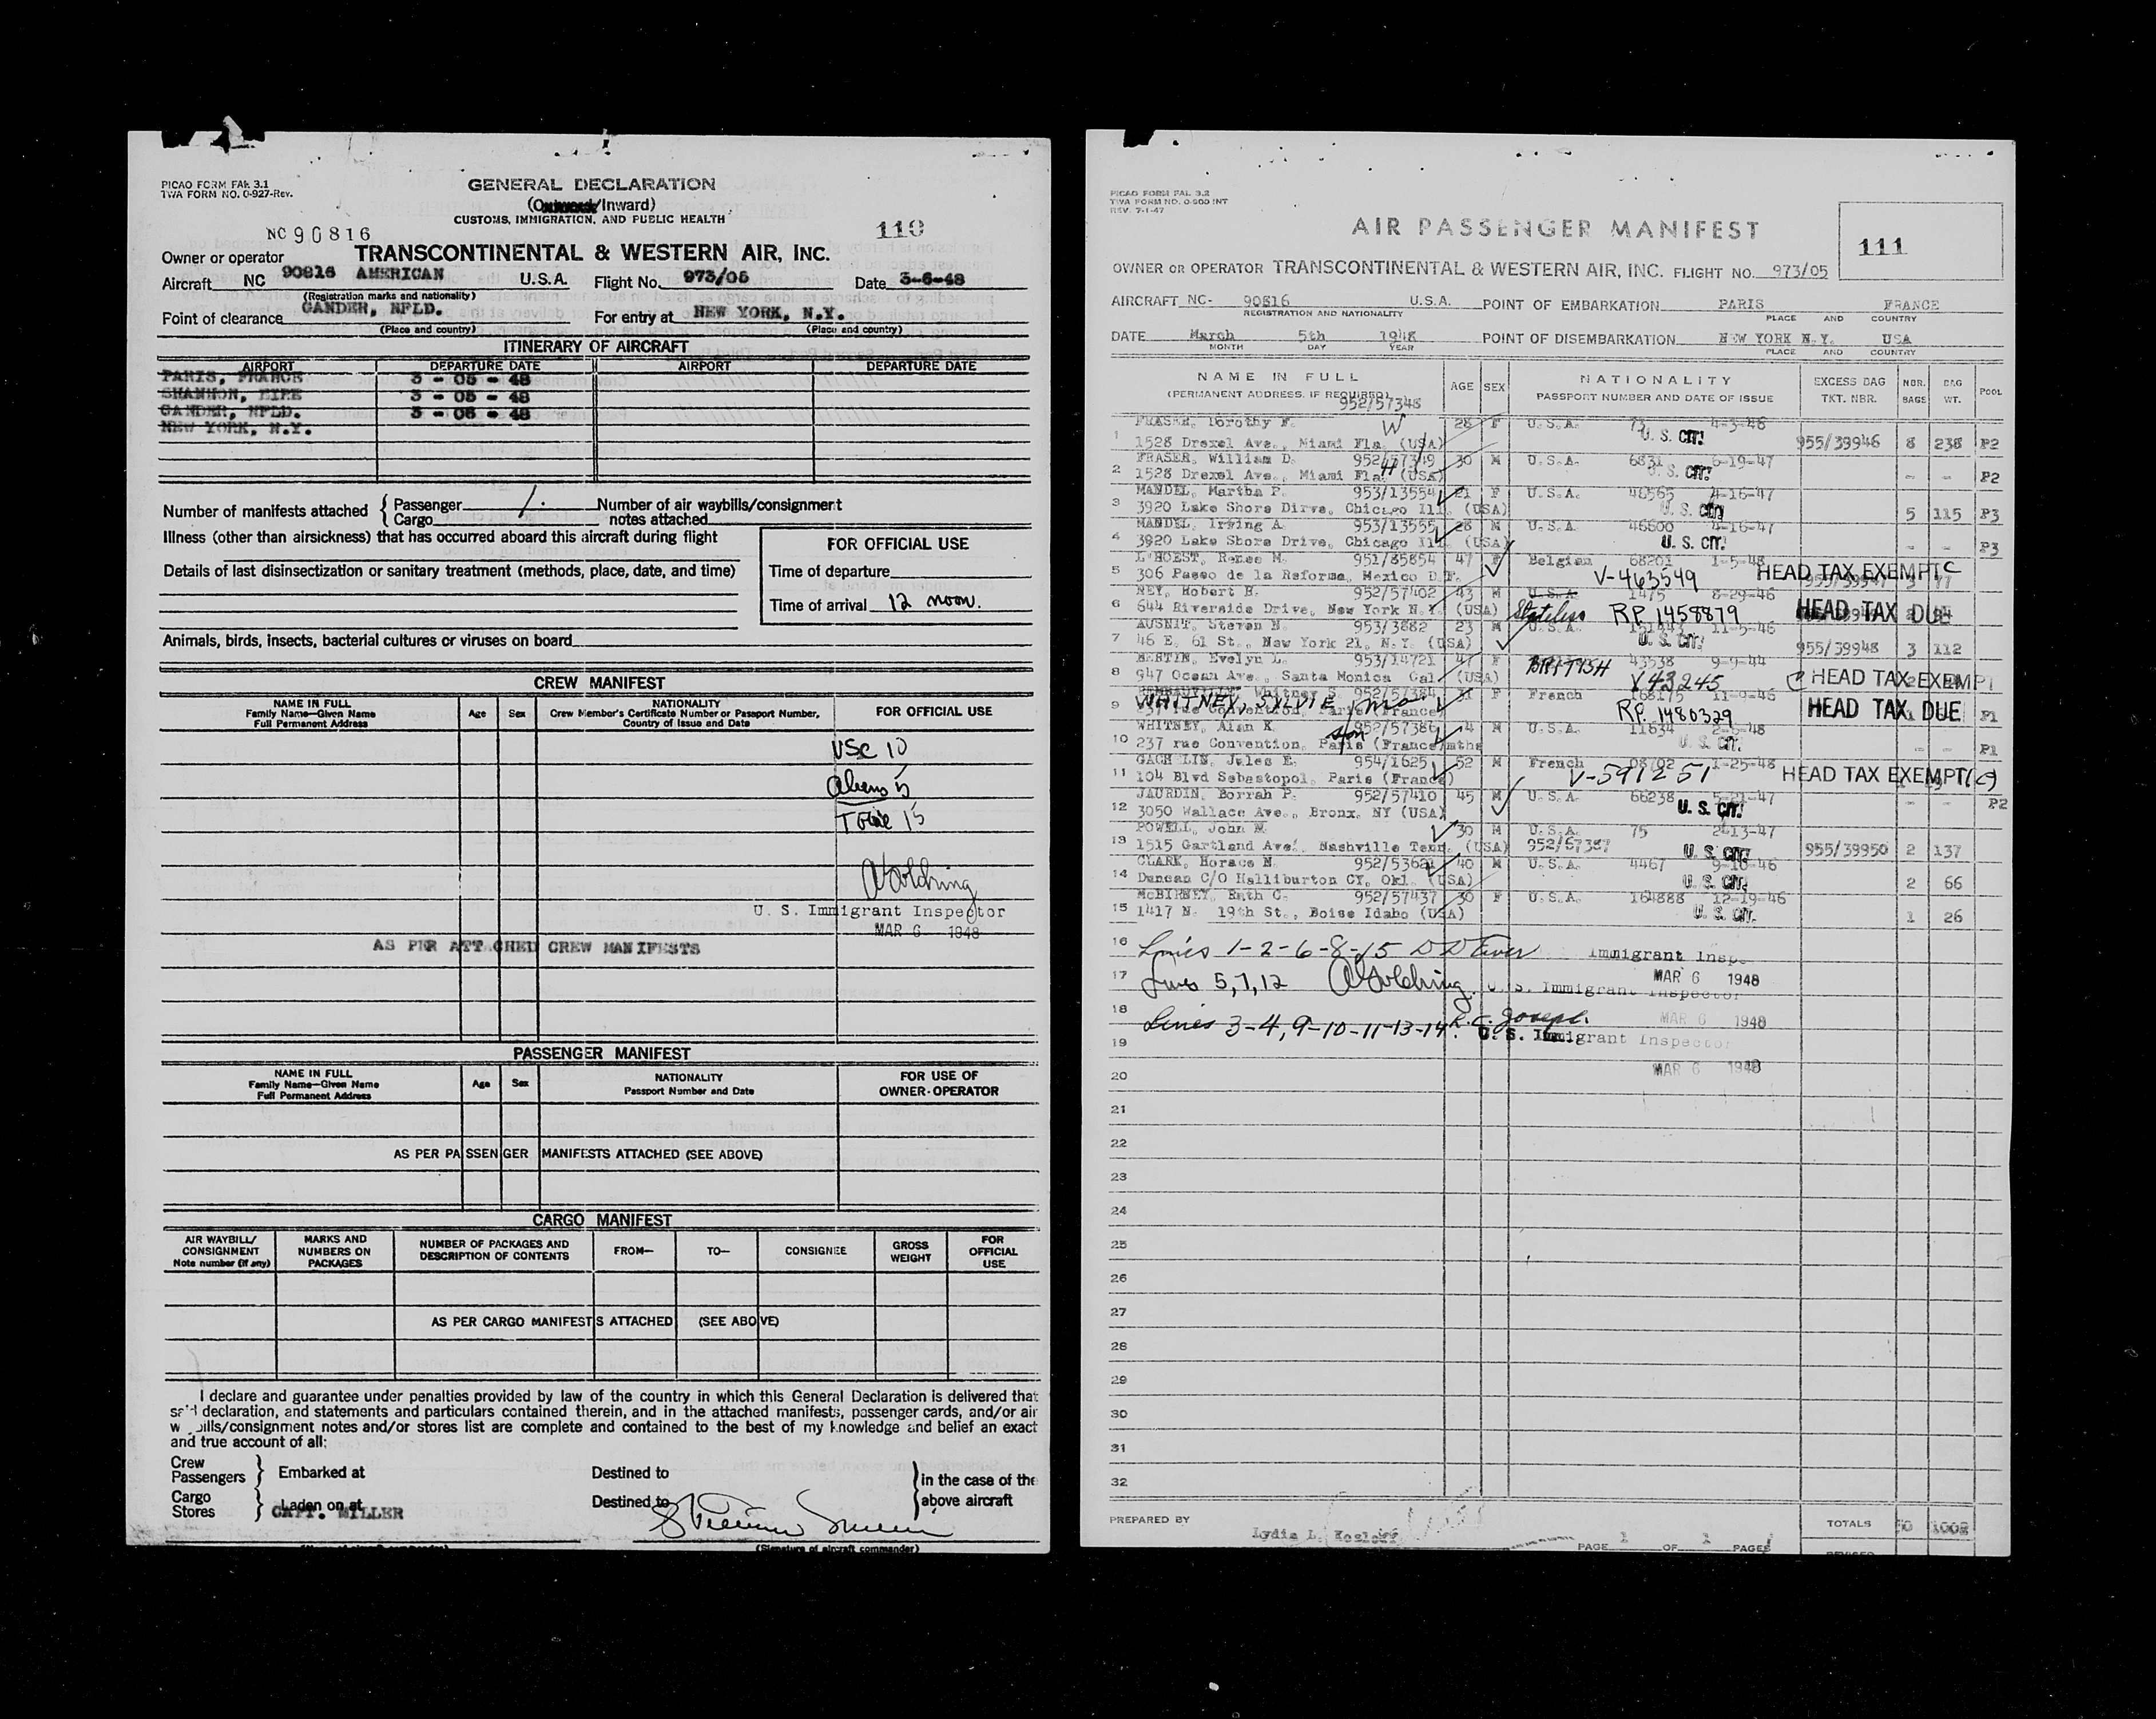 PICAO FORM FAL 3.1
TWA FORM NO. 0-927-Rev.
GENERAL DECLARATION
(Outward/Inward)
CUSTOMS, IMMIGRATION, AND PUBLIC HEALTH
NC 90816
110
Owner or operator TRANSCONTINENTAL & WESTERN AIR, INC.
Aircraft NC 90816 AMERICAN U.S.A. Flight No. 973/05 Date 3-6-48
(Registration marks and nationality)
Point of clearance GANDER, NFLD. For entry at NEW YORK, N.Y.
(Place and country) (Place and country)
ITINERARY OF AIRCRAFT
AIRPORT DEPARTURE DATE AIRPORT DEPARTURE DATE
PARIS, FRANCE 3 - 05 - 48
SHANNON, EIRE 3 - 05 - 48
GANDER, NFLD. 3 - 06 - 48
NEW YORK, N.Y.
Number of manifests attached { Passenger 1. Number of air waybills/consignment
Cargo notes attached
Illness (other than airsickness) that has occurred aboard this aircraft during flight
FOR OFFICIAL USE
Details of last disinsectization or sanitary treatment (methods, place, date, and time)
Time of departure
Time of arrival 12 noon.
Animals, birds, insects, bacterial cultures or viruses on board
CREW MANIFEST
NAME IN FULL
Family Name—Given Name
Full Permanent Address
Age Sex
NATIONALITY
Crew Member's Certificate Number or Passport Number,
Country of Issue and Date
FOR OFFICIAL USE
USC 10
Aliens 5
Total 15
U. S. Immigrant Inspector
MAR 6 1948
AS PER ATTACHED CREW MANIFESTS
PASSENGER MANIFEST
NAME IN FULL
Family Name—Given Name
Full Permanent Address
Age Sex
NATIONALITY
Passport Number and Date
FOR USE OF
OWNER-OPERATOR
AS PER PASSENGER MANIFESTS ATTACHED (SEE ABOVE)
CARGO MANIFEST
AIR WAYBILL/
CONSIGNMENT
Note number (if any)
MARKS AND
NUMBERS ON
PACKAGES
NUMBER OF PACKAGES AND
DESCRIPTION OF CONTENTS
FROM— TO— CONSIGNEE
GROSS
WEIGHT
FOR
OFFICIAL
USE
AS PER CARGO MANIFESTS ATTACHED (SEE ABOVE)
I declare and guarantee under penalties provided by law of the country in which this General Declaration is delivered that
said declaration, and statements and particulars contained therein, and in the attached manifests, passenger cards, and/or air
waybills/consignment notes and/or stores list are complete and contained to the best of my knowledge and belief an exact
and true account of all:
Crew
Passengers } Embarked at Destined to
Cargo
Stores } Laden on at Destined to
} in the case of the
above aircraft
CAPT. MILLER
(Signature of aircraft commander)
PICAO FORM FAL 3.2
TWA FORM NO. 0-900 INT
REV. 7-1-47
AIR PASSENGER MANIFEST
111
OWNER OR OPERATOR TRANSCONTINENTAL & WESTERN AIR, INC. FLIGHT NO. 973/05
AIRCRAFT NC- 90816 U.S.A. POINT OF EMBARKATION PARIS FRANCE
REGISTRATION AND NATIONALITY PLACE AND COUNTRY
DATE March 5th 1948 POINT OF DISEMBARKATION NEW YORK N.Y. USA
MONTH DAY YEAR PLACE AND COUNTRY
NAME IN FULL
(PERMANENT ADDRESS, IF REQUIRED)
AGE SEX
NATIONALITY
PASSPORT NUMBER AND DATE OF ISSUE
EXCESS BAG
TKT. NBR.
NBR.
BAGS
BAG
WT.
POOL
952/57348
FRASER, Dorothy F. W 28 F U.S.A. 73 4-3-46
1 1528 Drexel Ave., Miami Fla. (USA) U. S. CIT. 955/39946 8 238 P2
FRASER, William D. 952/57349 30 M U.S.A. 6831 6-19-47
2 1528 Drexel Ave., Miami Fla. (USA) H U. S. CIT. - - P2
MANDEL, Martha P. 953/13554 21 F U.S.A. 48565 4-16-47
3 3920 Lake Shore Dirve, Chicago Ill. (USA) U. S. CIT. 5 115 P3
MANDEL, Irving A. 953/13555 28 M U.S.A. 46600 4-16-47
4 3920 Lake Shore Drive, Chicago Ill. (USA) U. S. CIT. - - P3
L'HOEST, Renee M. 951/85854 47 F Belgian 68201 1-5-48
5 306 Paseo de la Reforma, Mexico D.F. V-463549 HEAD TAX EXEMPT C
REY, Robert H. 952/57402 43 M U.S.A. 1475 8-29-46
6 644 Riverside Drive, New York N.Y. (USA) Stateless RP 1458879 HEAD TAX DUE
AUSNIT, Steven N. 953/3882 23 M U.S.A. 11-5-46
7 46 E. 61 St., New York 21, N.Y. (USA) U. S. CIT. 955/39948 3 112
BERTIN, Evelyn L. 953/14721 47 F BRITISH 43538 9-9-44
8 947 Ocean Ave., Santa Monica Cal. (USA) V 43245 C HEAD TAX EXEMPT
Whitney S. 952/57384 F French 168175 11-9-46
9 WHITNEY, SYLVIE Paris (France) RP. 1480329 HEAD TAX DUE P1
WHITNEY, Alan K. 952/57386 4 M U.S.A. 11634 2-5-48
10 237 rue Convention, Paris (France) mths son U. S. CIT. - - P1
GACHELIN, Jules E. 954/1625 52 M French 08702 1-25-48
11 104 Blvd Sebastopol, Paris (France) V-591251 HEAD TAX EXEMPT (C)
JAURDIN, Borrah P. 952/57410 45 M U.S.A. 66238 5-21-47 - - P2
12 3050 Wallace Ave., Bronx, NY (USA) U. S. CIT.
POWELL, John M. 30 M U.S.A. 75 2-13-47
13 1515 Gartland Ave. Nashville Tenn. (USA) 952/57387 U. S. CIT. 955/39950 2 137
CLARK, Horace N. 952/53621 40 M U.S.A. 4467 9-10-46
14 Duncan C/O Halliburton CY, Okl. (USA) U. S. CIT. 2 66
McBIRNEY, Ruth C. 952/57437 30 F U.S.A. 164888 12-19-46
15 1417 N. 19th St., Boise Idaho (USA) U. S. CIT. 1 26
16 Lines 1-2-6-8-15 Immigrant Insp
17 Lines 5, 7, 12 MAR 6 1948
U. S. Immigrant Inspector
18 Lines 3-4, 9-10-11-13-14. R. C. Joseph. MAR 6 1948
19 U. S. Immigrant Inspector
20 MAR 6 1948
21
22
23
24
25
26
27
28
29
30
31
32
PREPARED BY Lydia L. PAGE 1 OF 1 PAGES
TOTALS 1002